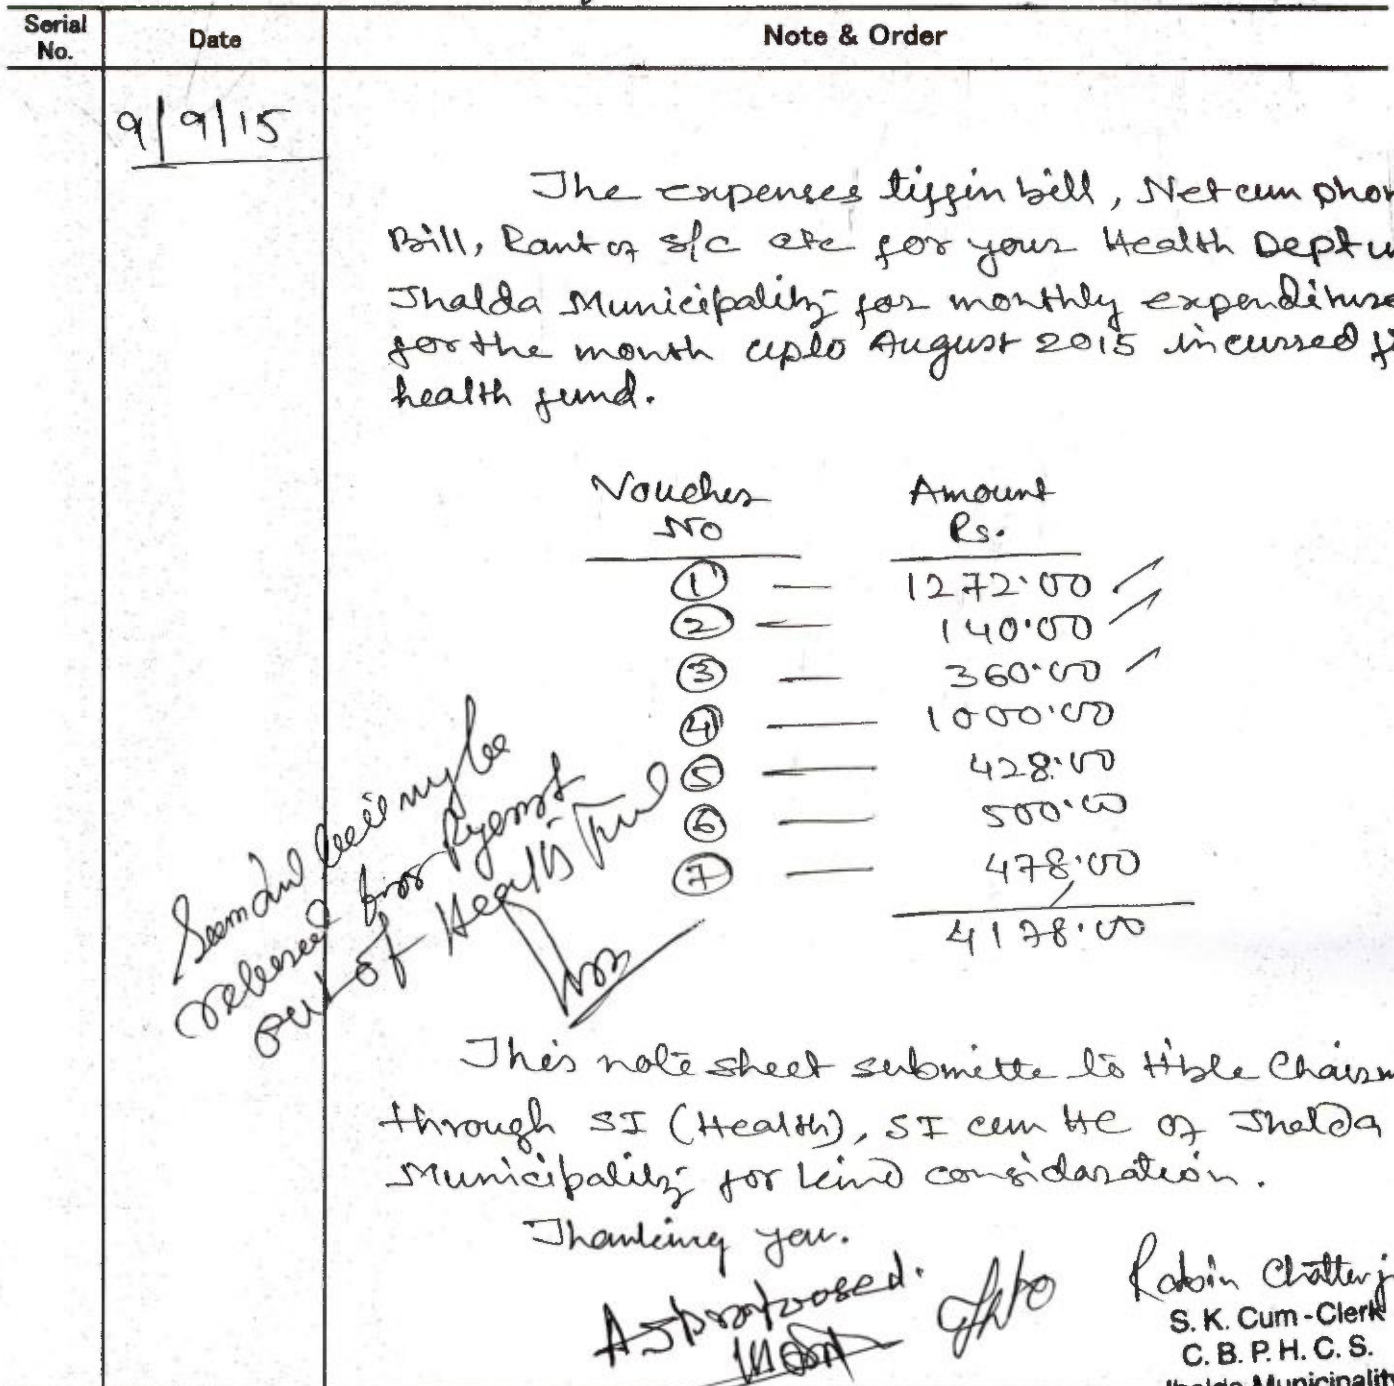 Serial No. Date Note & Order
9/9/15
The expenses tiffin bill, Net cum phon
Bill, Rant of s/c etc for your Health Dept u
Jhalda Municipality for monthly expenditure
for the month upto August 2015 incurred f
health fund.
Voucher No Amount Rs.
1 — 1272.00
2 — 140.00
3 — 360.00
4 — 1000.00
5 — 428.00
6 — 500.00
7 — 478.00
4178.00
bill may be
released for
out of Health Fund
This note sheet submitte to H'ble Chairm
through SI (Health), SI cum HC of Jhalda
Municipality for kind considaration.
Thanking you.
As proposed.
Rabin Chatterj
S. K. Cum-Clerk
C. B. P. H. C. S.
Jhalda Municipality